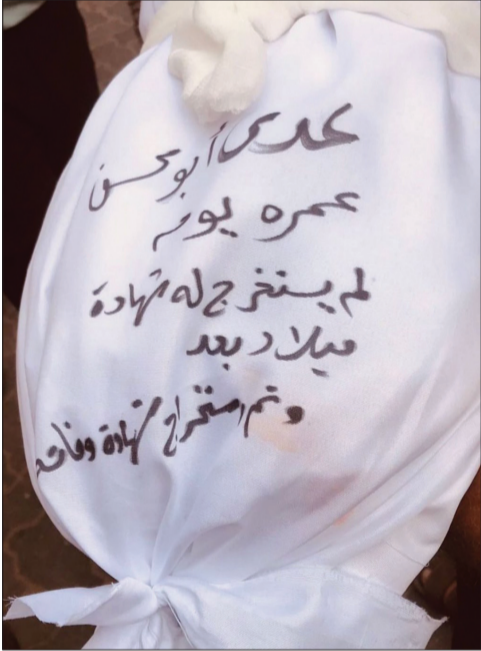 عدي أبو محسن
عمره يوم
لم يستخرج له شهادة
ميلاد بعد
وتم استخراج شهادة وفاته